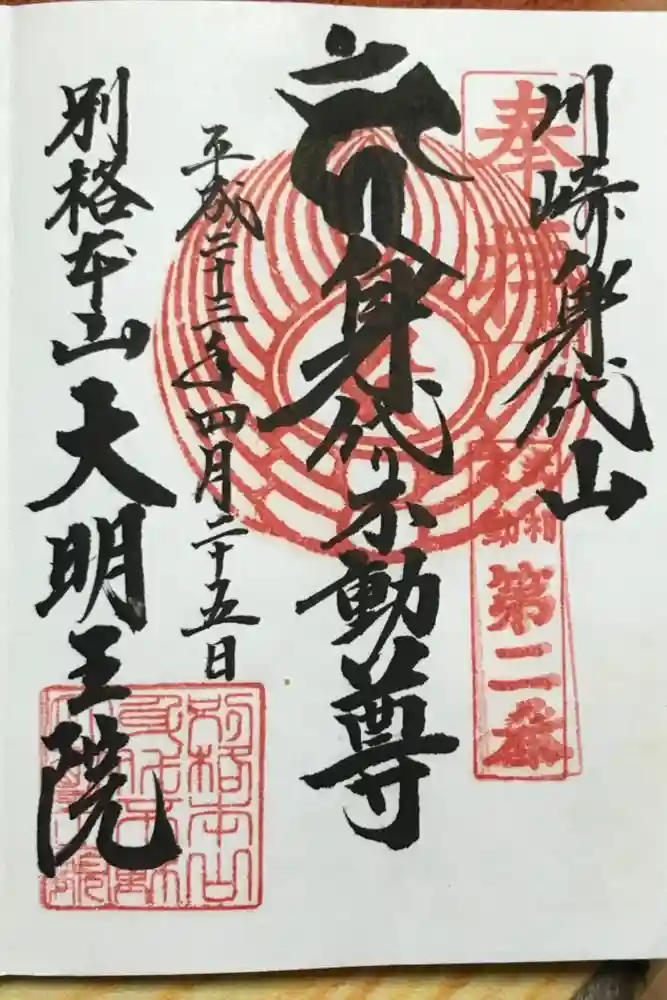 川崎身代山
奉拝
第二番
身代り不動尊
平成二十三年四月二十五日
別格本山
大明王院